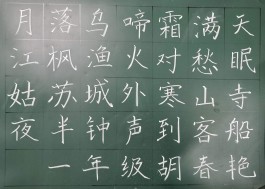 月落乌啼霜满天
江枫渔火对愁眠
姑苏城外寒山寺
夜半钟声到客船
一年级胡春艳